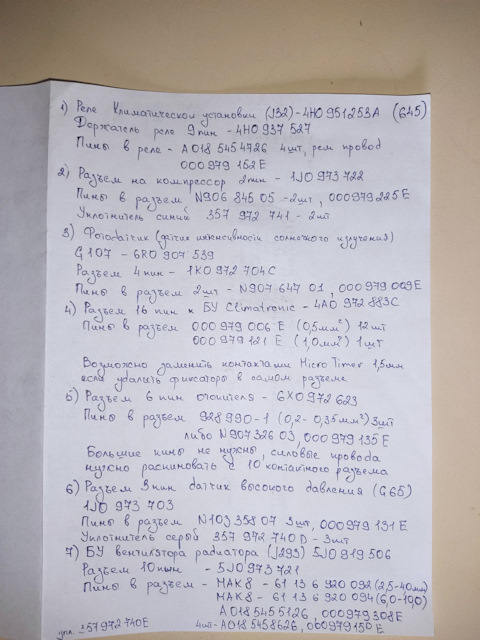 1) Реле Климатической установки (J32) - 4H0 951 253A (645)
Держатель реле 9 пин - 4H0 937 527
Пины в реле - A018 545 4726 4шт, рем провод
000 979 152E
2) Разъем на компрессор 2пин - 1J0 973 722
Пины в разъем N906 845 05 - 2шт, 000979225E
Уплотнитель синий 357 972 741 - 2шт
3) Фотодатчик (датчик интенсивности солнечного излучения)
G107 - 6R0 907 539
Разъем 4 пин - 1K0 972 704C
Пины в разъем 2шт - N907 647 01, 000 979 009E
4) Разъем 16 пин к БУ Climatronic - 4A0 972 883C
Пины в разъем 000 979 006 E (0,5мм²) 12 шт
000 979 121 E (1,0мм²) 1шт
Возможно заменить контактами Micro Timer 1,5мм
если удалить фиксаторы в самом разъеме
5) Разъем 6 пин отопителя - 6X0 972 623
Пины в разъем 928 990-1 (0,2-0,35мм²) 3шт
либо N907 326 03, 000 979 135E
Большие пины не нужны, силовые провода
нужно распиновать с 10 контактного разъема
6) Разъем 3пин датчик высокого давления (G65)
1J0 973 703
Пины в разъем N103 358 07 3шт, 000979 131 E
Уплотнитель серый 357 972 740 D - 3шт
7) БУ вентилятора радиатора (J293) 5J0 919 506
Разъем 10пин - 5J0 973 721
Пины в разъем - МАК8 - 61 13 6 920 092 (2,5-40мм)
МАК8 - 61 13 6 920 094 (6,0-10,0)
A018 545 5126, 000979308E
упл. 357 972 740E 4шт - A018 545 8626, 000979150E